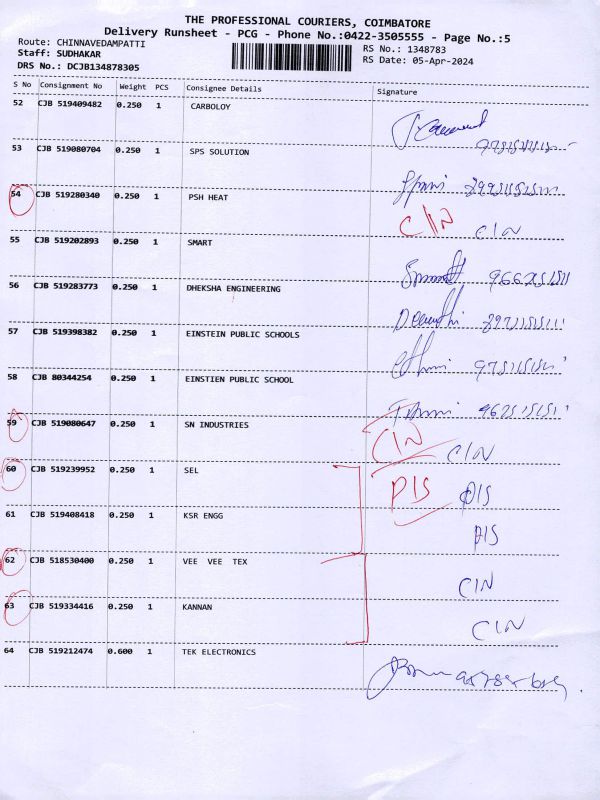 THE PROFESSIONAL COURIERS, COIMBATORE
Delivery Runsheet - PCG - Phone No.:0422-3505555 - Page No.:5
Route: CHINNAVEDAMPATTI RS No.: 1348783
Staff: SUDHAKAR RS Date: 05-Apr-2024
DRS No.: DCJB134878305
S No Consignment No Weight PCS Consignee Details Signature
52 CJB 519409482 0.250 1 CARBOLOY
53 CJB 519080704 0.250 1 SPS SOLUTION
54 CJB 519280340 0.250 1 PSH HEAT
CIN CIN
55 CJB 519202893 0.250 1 SMART
56 CJB 519283773 0.250 1 DHEKSHA ENGINEERING
57 CJB 519398382 0.250 1 EINSTEIN PUBLIC SCHOOLS
58 CJB 80344254 0.250 1 EINSTIEN PUBLIC SCHOOL
59 CJB 519080647 0.250 1 SN INDUSTRIES
CIN CIN
60 CJB 519239952 0.250 1 SEL
PIS PIS
61 CJB 519408418 0.250 1 KSR ENGG
PIS
62 CJB 518530400 0.250 1 VEE VEE TEX
CIN
63 CJB 519334416 0.250 1 KANNAN
CIN
64 CJB 519212474 0.600 1 TEK ELECTRONICS